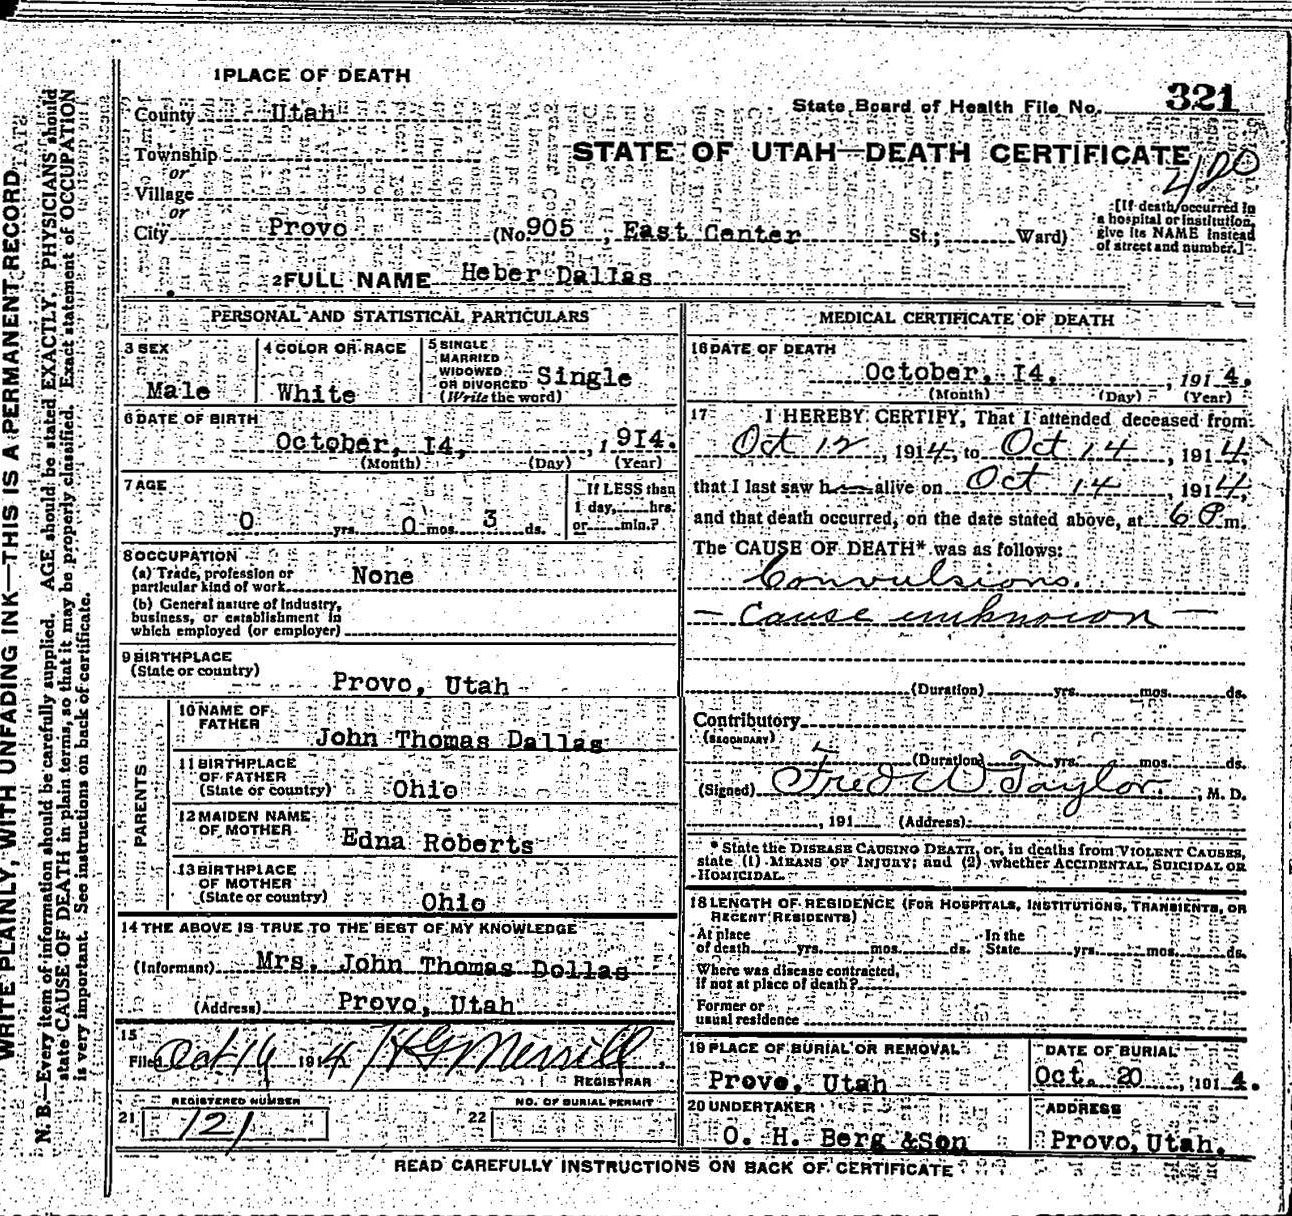 1 PLACE OF DEATH
State Board of Health File No. 321
County Utah
STATE OF UTAH—DEATH CERTIFICATE
Township
or
Village
or
City Provo (No. 905, East Center St.; Ward)
[If death occurred in
a hospital or institution,
give its NAME instead
of street and number.]
2 FULL NAME Heber Dallas
PERSONAL AND STATISTICAL PARTICULARS
3 SEX
Male
4 COLOR OR RACE
White
5 SINGLE
MARRIED
WIDOWED
OR DIVORCED Single
(Write the word)
6 DATE OF BIRTH
October, I4, , 9I4.
(Month) (Day) (Year)
7 AGE
0 yrs. 0 mos. 3 ds.
If LESS than
1 day, hrs.
or min.?
8 OCCUPATION
(a) Trade, profession or
particular kind of work None
(b) General nature of industry,
business, or establishment in
which employed (or employer)
9 BIRTHPLACE
(State or country)
Provo, Utah
PARENTS
10 NAME OF
FATHER
John Thomas Dallas
11 BIRTHPLACE
OF FATHER
(State or country) Ohio
12 MAIDEN NAME
OF MOTHER Edna Roberts
13 BIRTHPLACE
OF MOTHER
(State or country) Ohio
14 THE ABOVE IS TRUE TO THE BEST OF MY KNOWLEDGE
(Informant) Mrs. John Thomas Dollas
(Address) Provo, Utah
15
Filed Oct 16 1914 H G Merrill
REGISTRAR
REGISTERED NUMBER
21 121
NO. OF BURIAL PERMIT
22
MEDICAL CERTIFICATE OF DEATH
16 DATE OF DEATH
October, I4, , 191 4.
(Month) (Day) (Year)
17 I HEREBY CERTIFY, That I attended deceased from
Oct 12, 1914, to Oct 14, 1914,
that I last saw h alive on Oct 14, 1914,
and that death occurred, on the date stated above, at 6 P m.
The CAUSE OF DEATH* was as follows:
Convulsions.
— Cause unknown —
(Duration) yrs. mos. ds.
Contributory
(SECONDARY)
(Duration) yrs. mos. ds.
(Signed) Fred W Taylor, M. D.
, 191 (Address)
* State the DISEASE CAUSING DEATH, or, in deaths from VIOLENT CAUSES,
state (1) MEANS OF INJURY; and (2) whether ACCIDENTAL, SUICIDAL OR
HOMICIDAL.
18 LENGTH OF RESIDENCE (FOR HOSPITALS, INSTITUTIONS, TRANSIENTS, OR
RECENT RESIDENTS)
At place
of death yrs. mos. ds. In the
State yrs. mos. ds.
Where was disease contracted,
if not at place of death?
Former or
usual residence
19 PLACE OF BURIAL OR REMOVAL
Provo, Utah
DATE OF BURIAL
Oct. 20, 191 4.
20 UNDERTAKER
O. H. Berg &Son
ADDRESS
Provo, Utah.
READ CAREFULLY INSTRUCTIONS ON BACK OF CERTIFICATE
WRITE PLAINLY, WITH UNFADING INK—THIS IS A PERMANENT RECORD.
N. B.—Every item of information should be carefully supplied. AGE should be stated EXACTLY. PHYSICIANS should
state CAUSE OF DEATH in plain terms, so that it may be properly classified. Exact statement of OCCUPATION
is very important. See instructions on back of certificate.